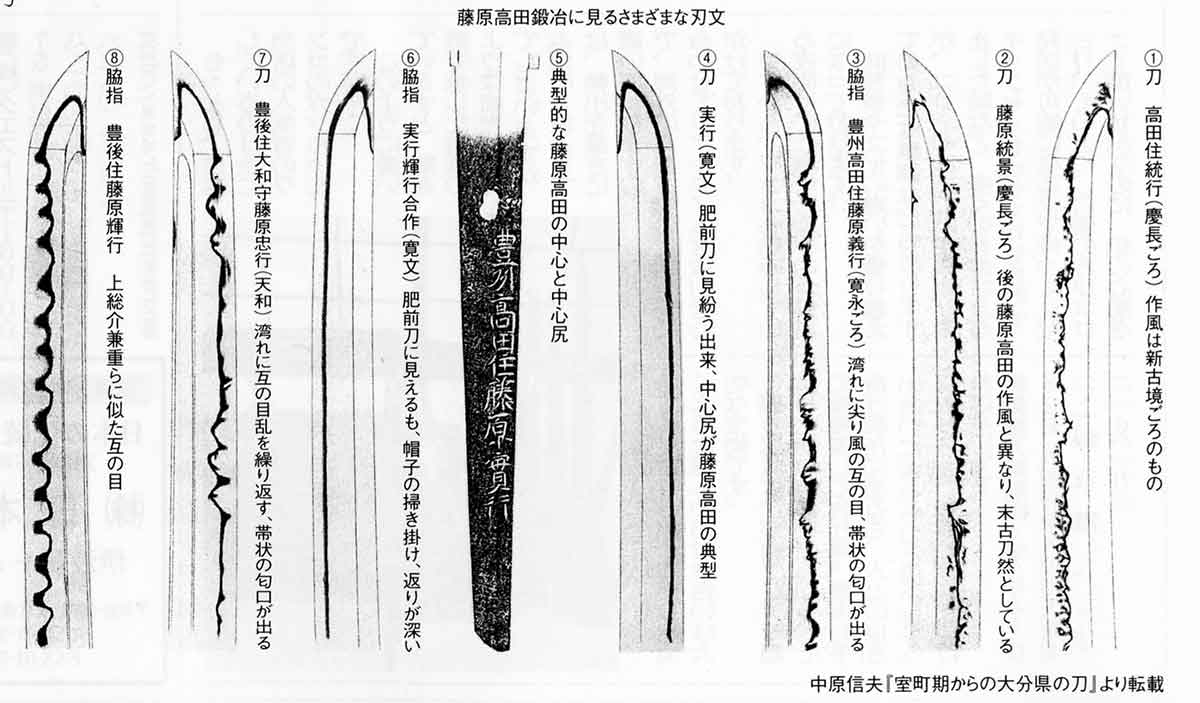 藤原高田鍛冶に見るさまざまな刃文
①刀　高田住統行(慶長ごろ)作風は新古境ごろのもの
②刀　藤原統景(慶長ごろ)後の藤原高田の作風と異なり、末古刀然としている
③脇指　豊州高田住藤原義行(寛永ごろ)湾れに尖り風の互の目、帯状の匂口が出る
④刀　実行(寛文)肥前刀に見紛う出来、中心尻が藤原高田の典型
⑤典型的な藤原高田の中心と中心尻
豊州高田住藤原實行
⑥脇指　実行輝行合作(寛文)肥前刀に見えるも、帽子の掃き掛け、返りが深い
⑦刀　豊後住大和守藤原忠行(天和)湾れに互の目乱を繰り返す、帯状の匂口が出る
⑧脇指　豊後住藤原輝行　上総介兼重らに似た互の目
中原信夫『室町期からの大分県の刀』より転載